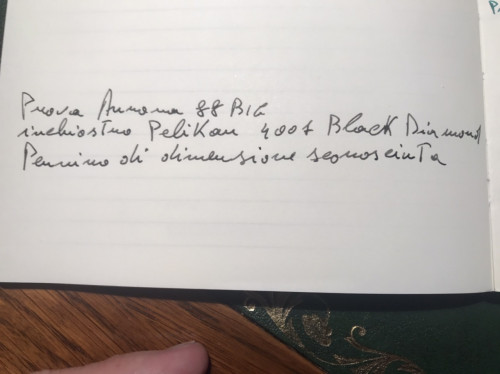 Prova Aurora 88 BIG
inchiostro Pelikan 4001 Black Diamond
Pennino di dimensione sconosciuta